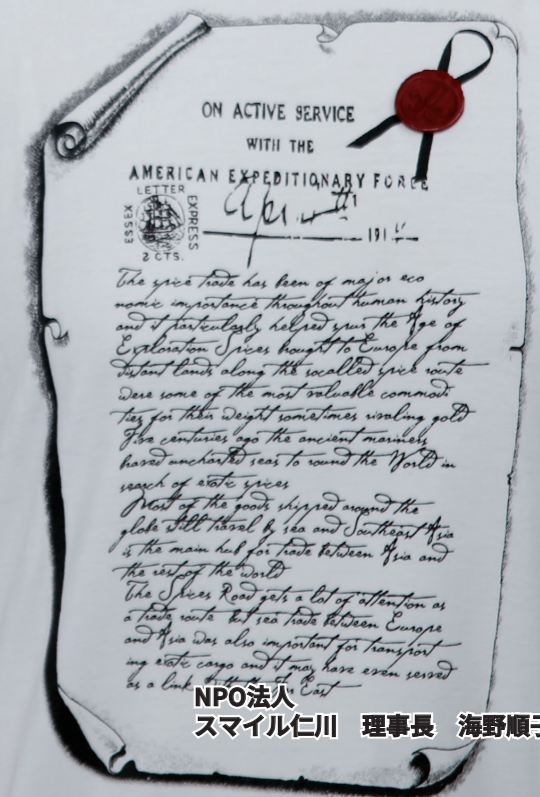 ON ACTIVE SERVICE
WITH THE
AMERICAN EXPEDITIONARY FORCE
LETTER
ESSEX
EXPRESS
2 CTS.
191
The spice trade has been of major eco
nomic importance throughout human history
and it particularly helped spur the Age of
Exploration Spices brought to Europe from
distant lands along the socalled spice route
were some of the most valuable commodi
ties for their weight sometimes rivaling gold
Five centuries ago the ancient mariners
braved uncharted seas to round the World in
search of exotic spices
Most of the goods shipped around the
globe still travel by sea and Southeast Asia
is the main hub for trade between Asia and
the rest of the world
The Spices Road gets a lot of attention as
a trade route but sea trade between Europe
and Asia was also important for transport
ing exotic cargo and it may have even served
as a link East
NPO法人
スマイル仁川 理事長 海野順子